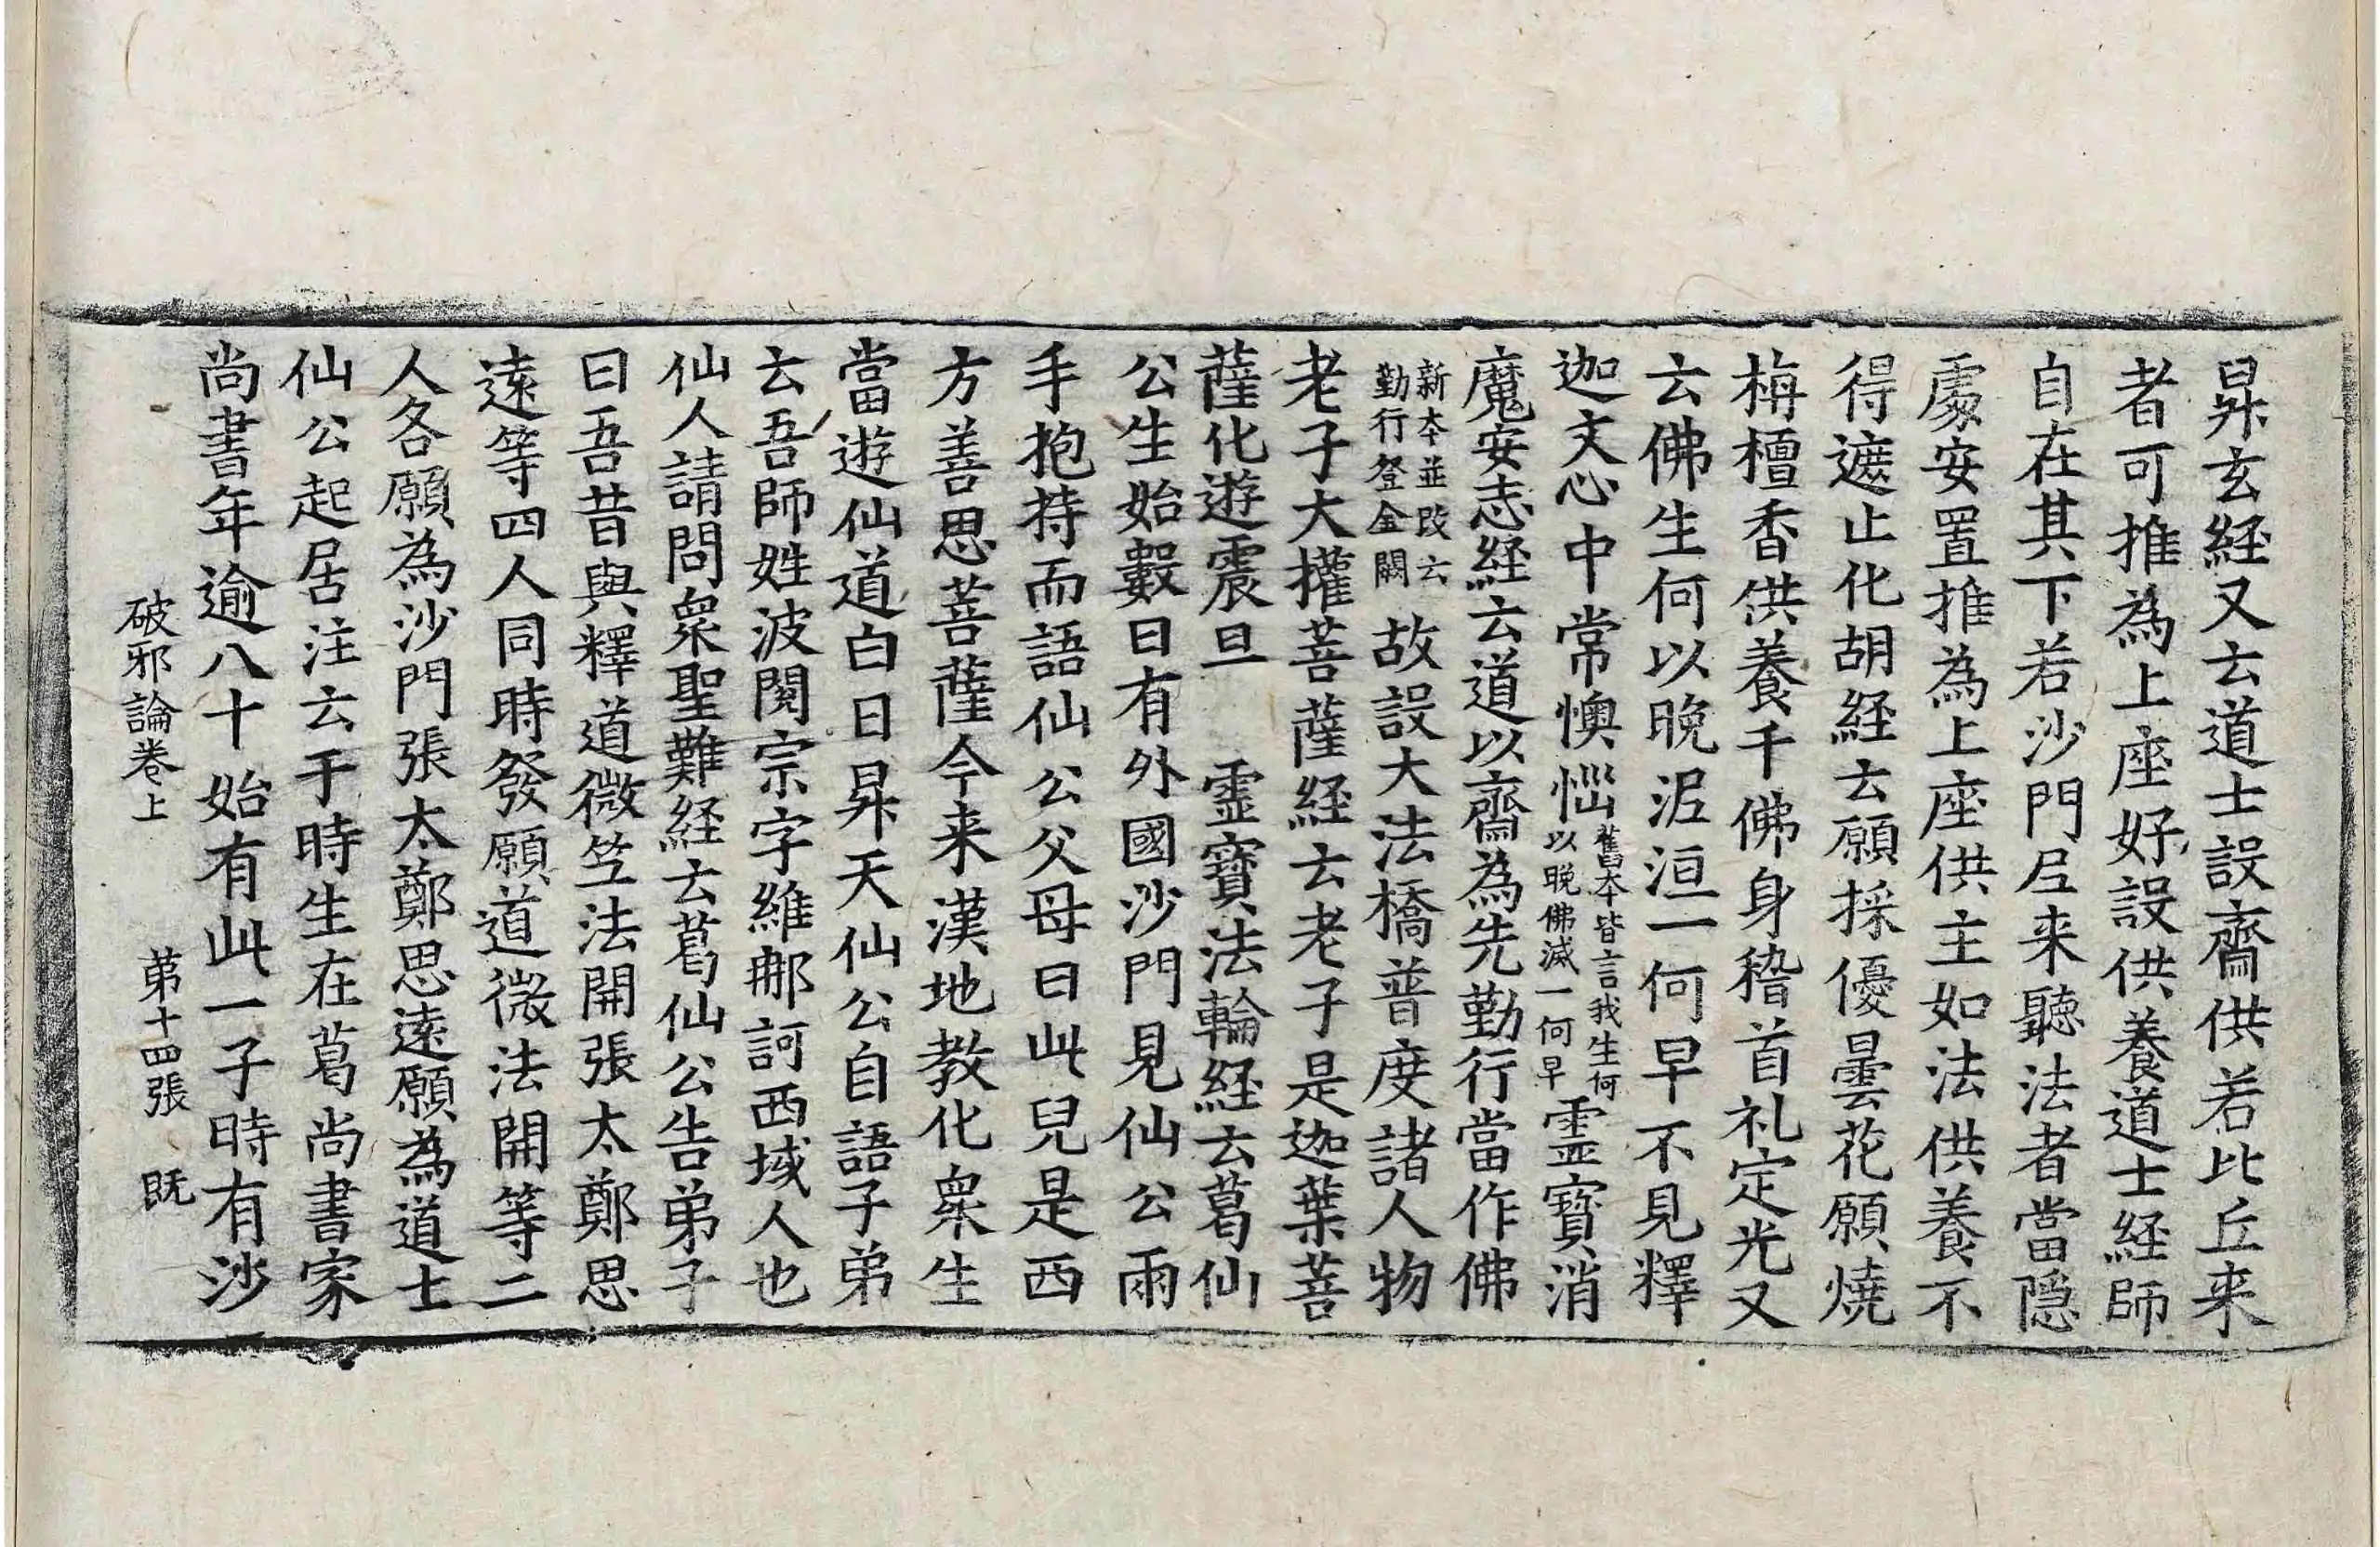 昇玄経又云道士設齋供若比丘来
者可推為上座好設供養道士経師
自在其下若沙門尼来聽法者當隱
處安置推為上座供主如法供養不
得遮止化胡経云願採優曇花願燒
栴檀香供養千佛身稽首礼定光又
云佛生何以晚泥洹一何早不見釋
迦文心中常懊惱舊本皆言我生何以晚佛滅一何早靈寶消
魔安志経云道以齋為先勤行當作佛
新本並改云勤行登金闕故設大法橋普度諸人物
老子大權菩薩経云老子是迦葉菩
薩化遊震旦　靈寶法輪経云葛仙
公生始數日有外國沙門見仙公兩
手抱持而語仙公父母曰此兒是西
方善思菩薩今来漢地教化衆生
當遊仙道白日昇天仙公自語子弟
云吾師姓波閱宗字維那訶西域人也
仙人請問衆聖難経云葛仙公告弟子
曰吾昔與釋道微竺法開張太鄭思
遠等四人同時發願道微法開等二
人各願為沙門張太鄭思遠願為道士
仙公起居注云于時生在葛尚書家
尚書年逾八十始有此一子時有沙
破邪論卷上　第十四張　既